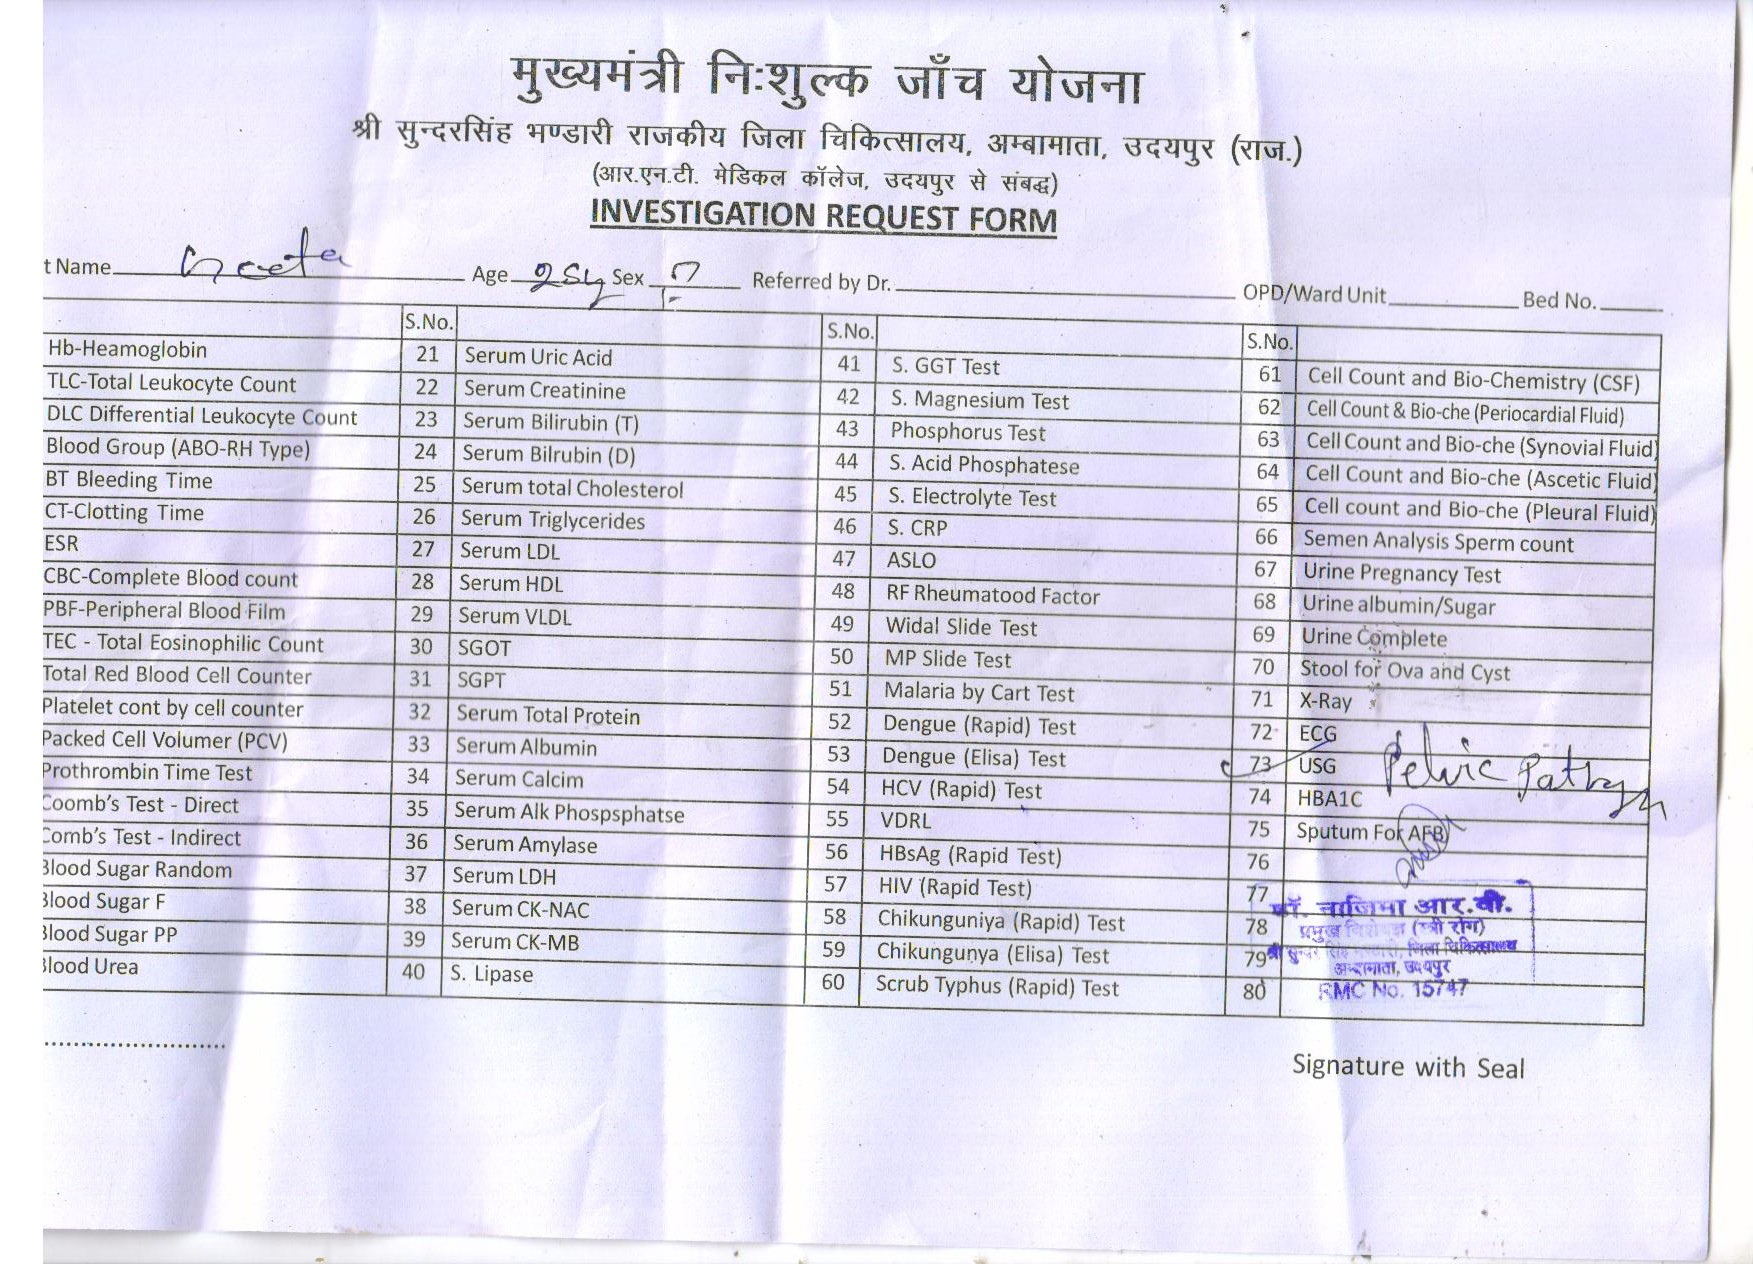 मुख्यमंत्री निःशुल्क जाँच योजना
श्री सुन्दरसिंह भण्डारी राजकीय जिला चिकित्सालय, अम्बामाता, उदयपुर (राज.)
(आर.एन.टी. मेडिकल कॉलेज, उदयपुर से संबद्ध)
INVESTIGATION REQUEST FORM
t Name Geeta Age 25y Sex F Referred by Dr. OPD/Ward Unit Bed No.
S.No. S.No. S.No.
Hb-Heamoglobin 21 Serum Uric Acid 41 S. GGT Test 61 Cell Count and Bio-Chemistry (CSF)
TLC-Total Leukocyte Count 22 Serum Creatinine 42 S. Magnesium Test 62 Cell Count & Bio-che (Periocardial Fluid)
DLC Differential Leukocyte Count 23 Serum Bilirubin (T) 43 Phosphorus Test 63 Cell Count and Bio-che (Synovial Fluid)
Blood Group (ABO-RH Type) 24 Serum Bilrubin (D) 44 S. Acid Phosphatese 64 Cell Count and Bio-che (Ascetic Fluid)
BT Bleeding Time 25 Serum total Cholesterol 45 S. Electrolyte Test 65 Cell count and Bio-che (Pleural Fluid)
CT-Clotting Time 26 Serum Triglycerides 46 S. CRP 66 Semen Analysis Sperm count
ESR 27 Serum LDL 47 ASLO 67 Urine Pregnancy Test
CBC-Complete Blood count 28 Serum HDL 48 RF Rheumatood Factor 68 Urine albumin/Sugar
PBF-Peripheral Blood Film 29 Serum VLDL 49 Widal Slide Test 69 Urine Complete
TEC - Total Eosinophilic Count 30 SGOT 50 MP Slide Test 70 Stool for Ova and Cyst
Total Red Blood Cell Counter 31 SGPT 51 Malaria by Cart Test 71 X-Ray
Platelet cont by cell counter 32 Serum Total Protein 52 Dengue (Rapid) Test 72 ECG
Packed Cell Volumer (PCV) 33 Serum Albumin 53 Dengue (Elisa) Test 73 USG Pelvic
Prothrombin Time Test 34 Serum Calcim 54 HCV (Rapid) Test 74 HBA1C
Coomb's Test - Direct 35 Serum Alk Phospsphatse 55 VDRL 75 Sputum For AFB
Comb's Test - Indirect 36 Serum Amylase 56 HBsAg (Rapid Test) 76
Blood Sugar Random 37 Serum LDH 57 HIV (Rapid Test) 77
Blood Sugar F 38 Serum CK-NAC 58 Chikunguniya (Rapid) Test 78
Blood Sugar PP 39 Serum CK-MB 59 Chikungunya (Elisa) Test 79
Blood Urea 40 S. Lipase 60 Scrub Typhus (Rapid) Test 80
डॉ. नाजिमा आर.वी.
प्रमुख विशेषज्ञ (स्त्री रोग)
श्री सुन्दर सिंह भण्डारी, जिला चिकित्सालय
अम्बामाता, उदयपुर
RMC No. 15747
Signature with Seal